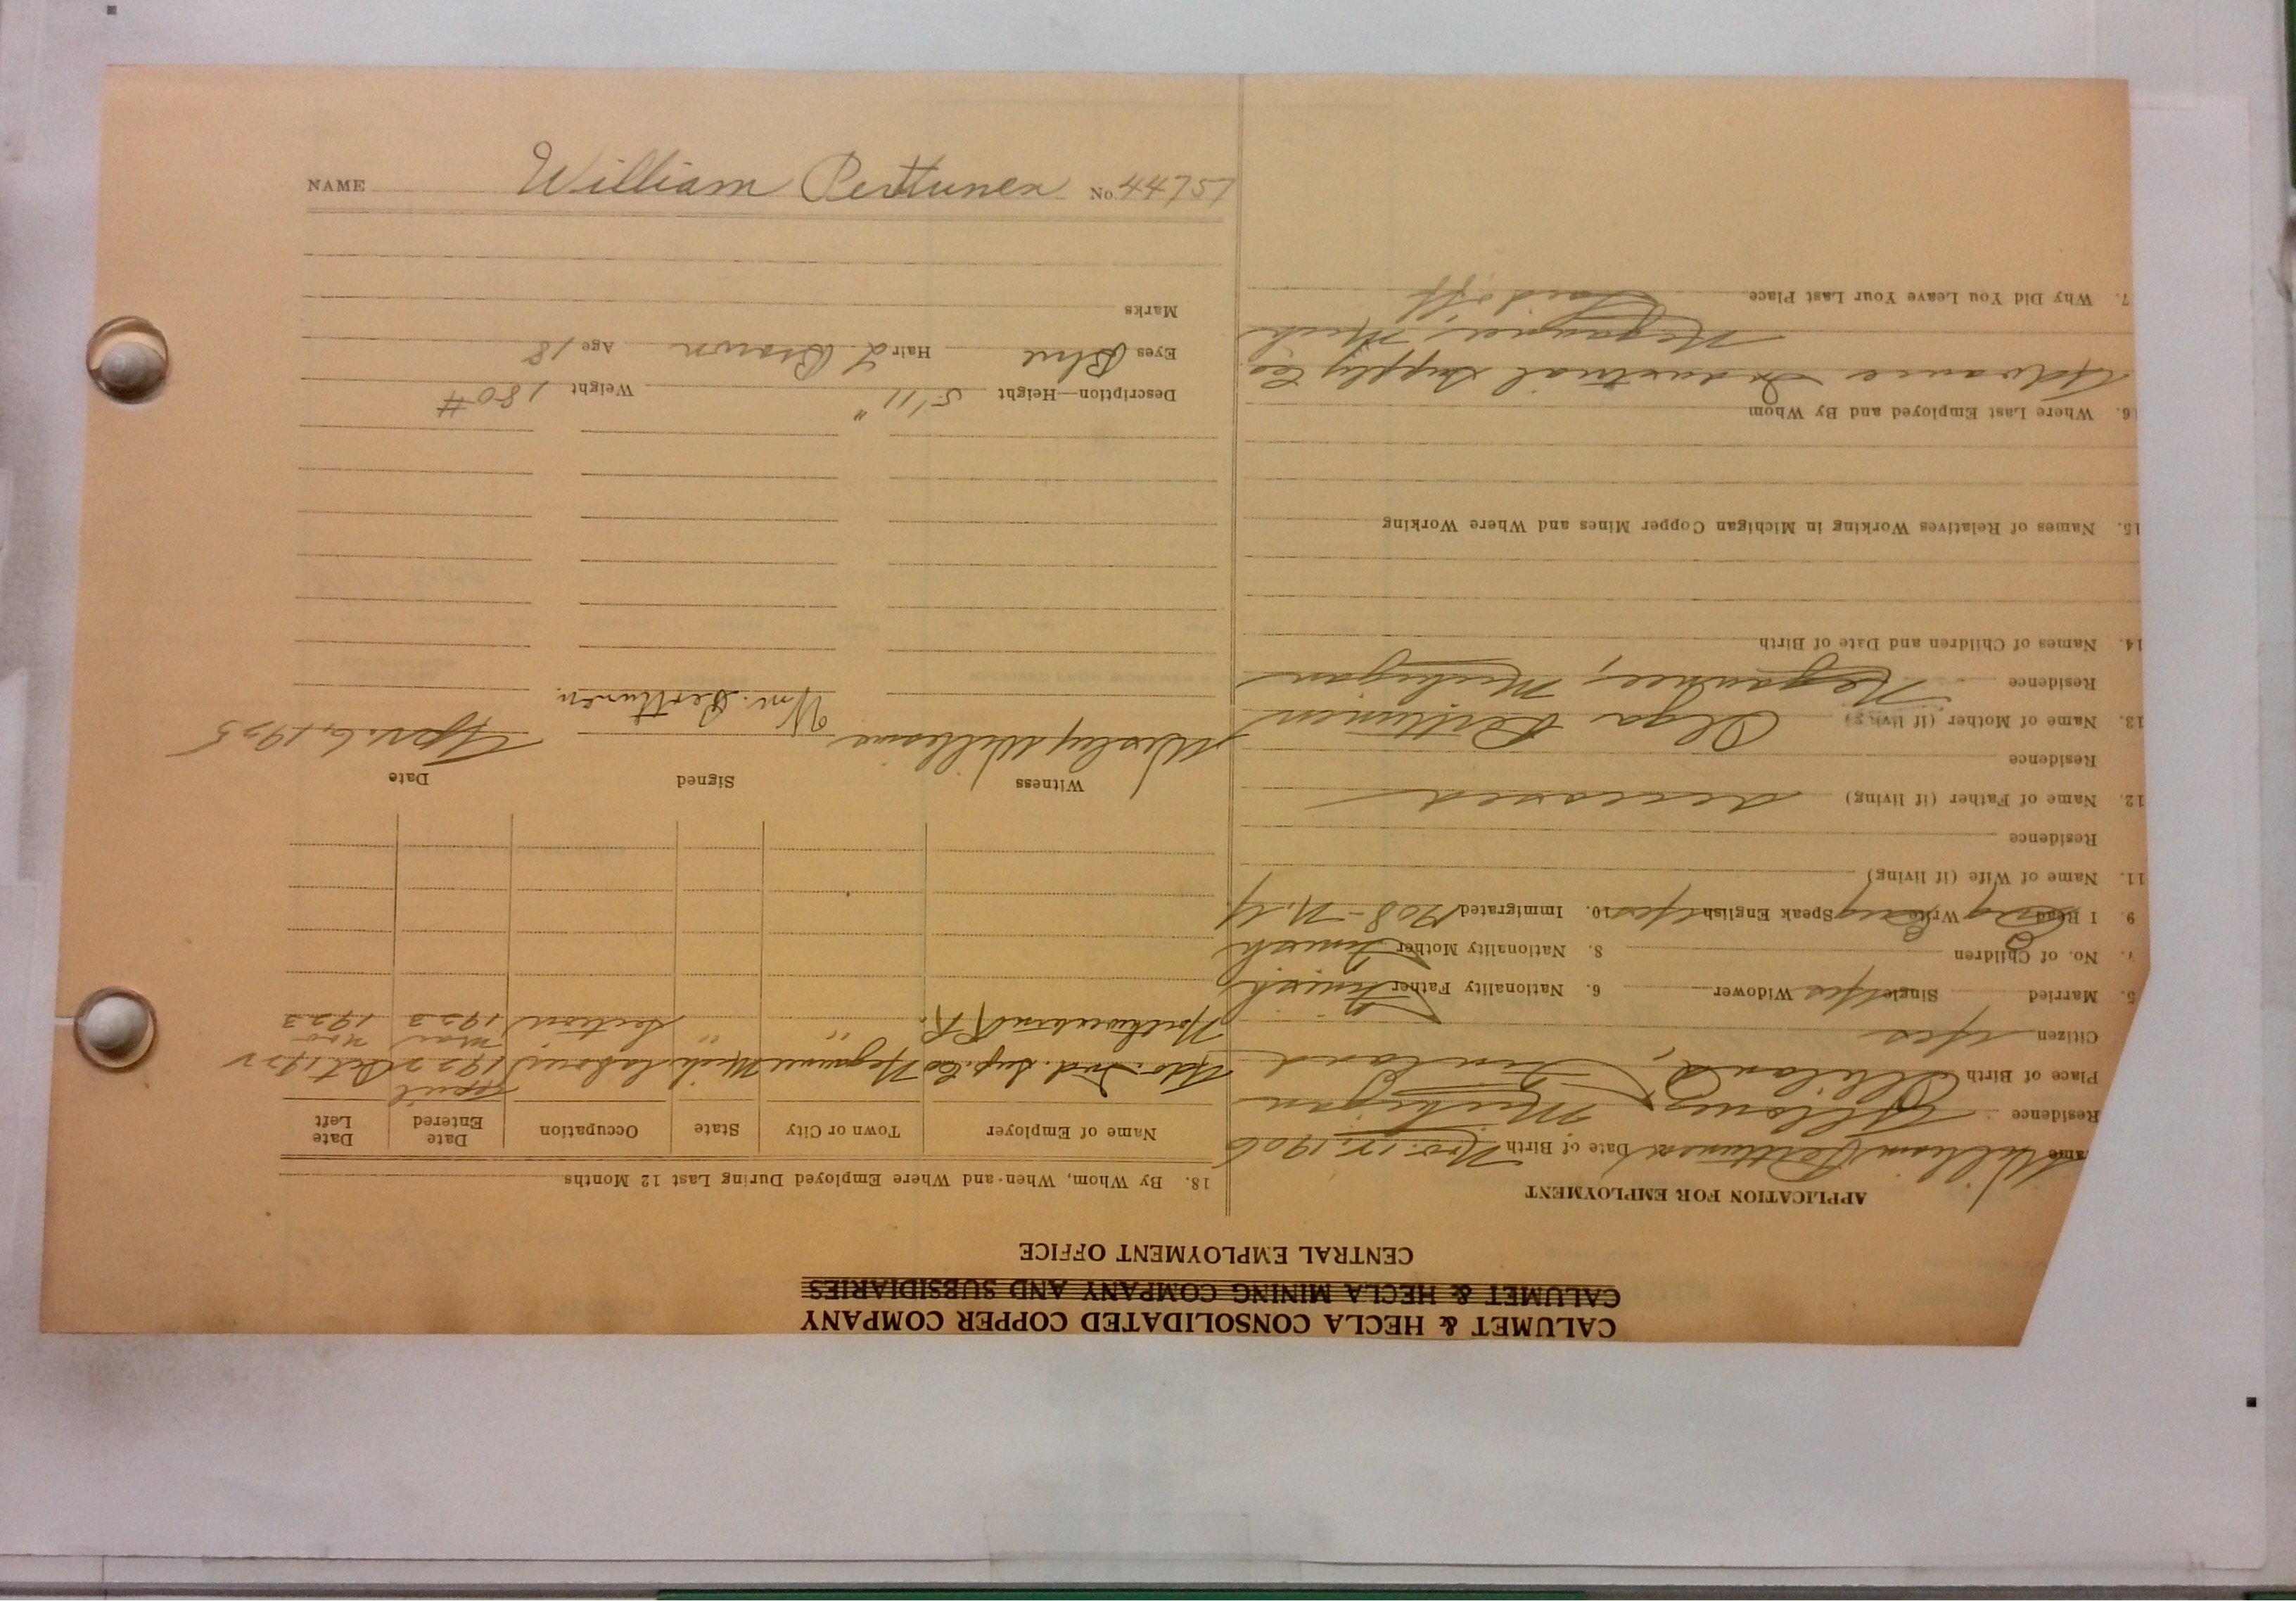 CALUMET & HECLA CONSOLIDATED COPPER COMPANY
CALUMET & HECLA MINING COMPANY AND SUBSIDIARIES
CENTRAL EMPLOYMENT OFFICE
APPLICATION FOR EMPLOYMENT
ame William Perttunen Date of Birth Nov. 12, 1906
Residence Ahmeek, Michigan
Place of Birth Finland
Citizen Yes
5. Married Single Yes Widower 6. Nationality Father Finnish
No. of Children 0 8. Nationality Mother Finnish
9. I Read Eng Write Eng Speak English Yes 10. Immigrated 1908 - N.Y.
11. Name of Wife (if living)
Residence
12. Name of Father (if living) deceased
Residence
13. Name of Mother (if living) Olga Perttunen
Residence Negaunee, Michigan
14. Names of Children and Date of Birth
15. Names of Relatives Working in Michigan Copper Mines and Where Working
16. Where Last Employed and By Whom
Advance Industrial Supply Co.
Negaunee, Mich
7. Why Did You Leave Your Last Place Laid off
18. By Whom, When and Where Employed During Last 12 Months
Name of Employer Town or City State Occupation Date Entered Date Left
Adv. Ind. Sup. Co Negaunee Mich laborer April 1922 Oct 1922
Northwestern R.R. " " Section Mar 1923 Nov 1923
Witness Signed Date
Wesley Williams Wm. Perttunen Apr. 6, 1925
Description—Height 5'11" Weight 180 #
Eyes Blue Hair L Brown Age 18
Marks
NAME William Perttunen No. 44757